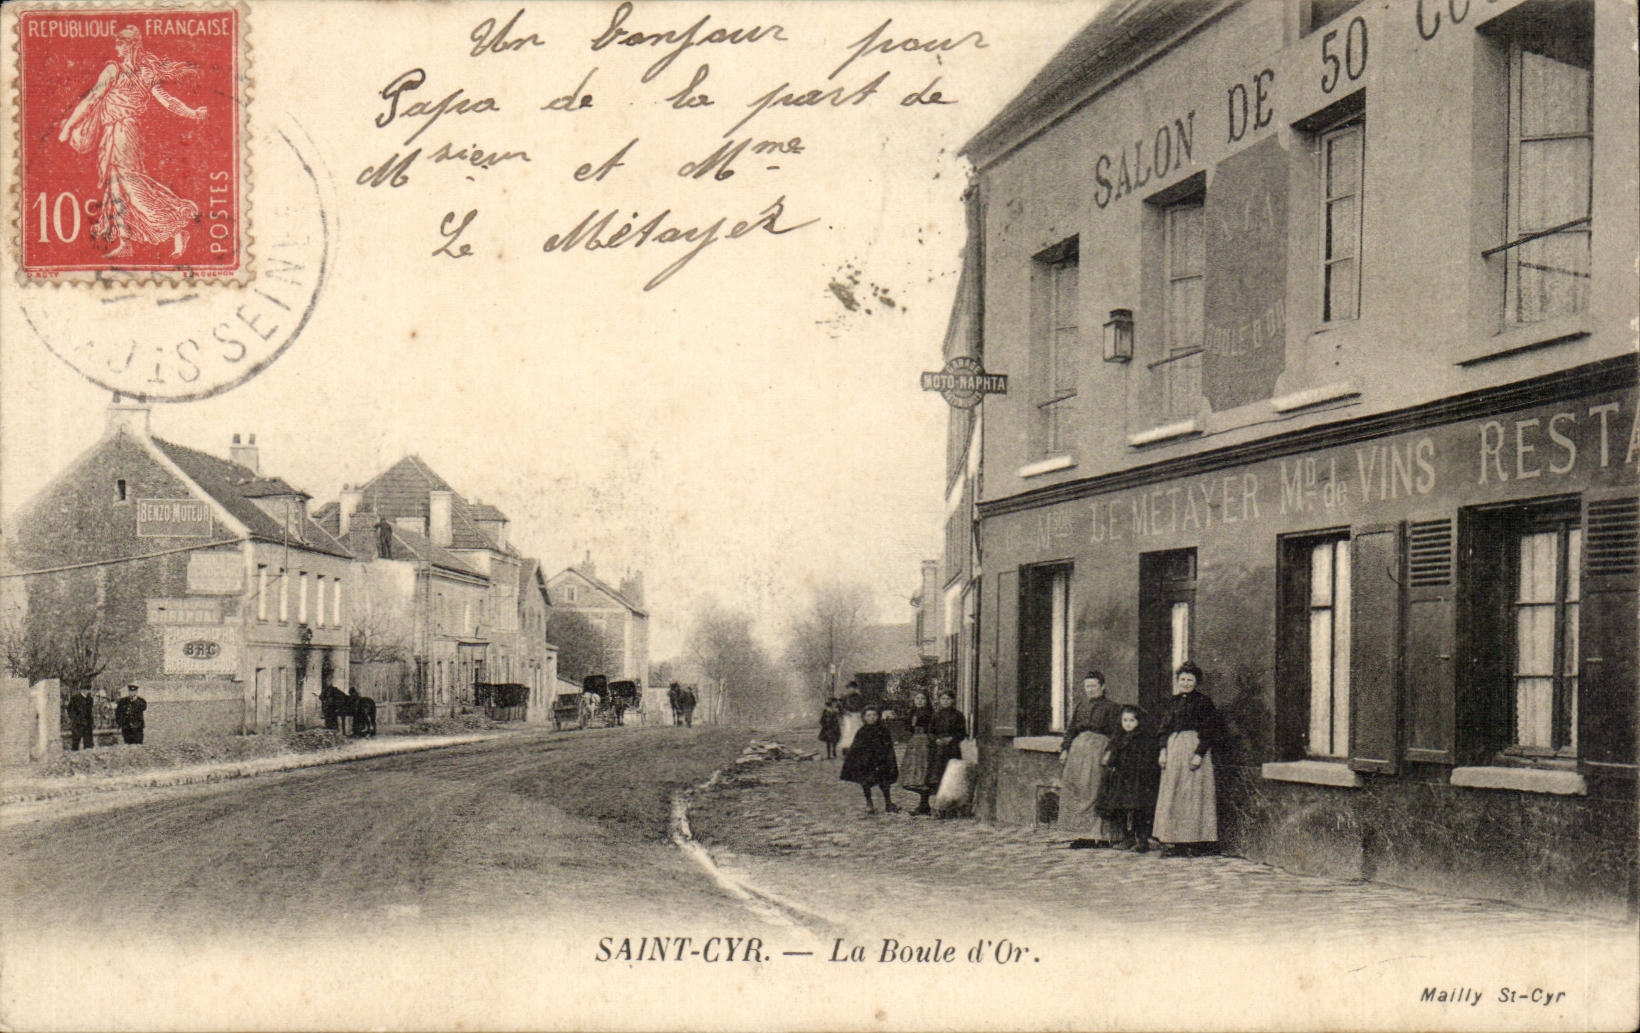 REPUBLIQUE FRANÇAISE
10c
POSTES
O. ROTY
E. MOUCHON
OISSEINE
Un bonjour pour
Papa de la part de
Msieur et Mme
Le Métayer
SALON DE 50 COU
BOULE D'OR
GARAGE
MOTO-NAPHTA
BENZO-MOTEUR
B.R.C
LE METAYER MD. de VINS RESTA
SAINT-CYR. — La Boule d'Or.
Mailly St-Cyr